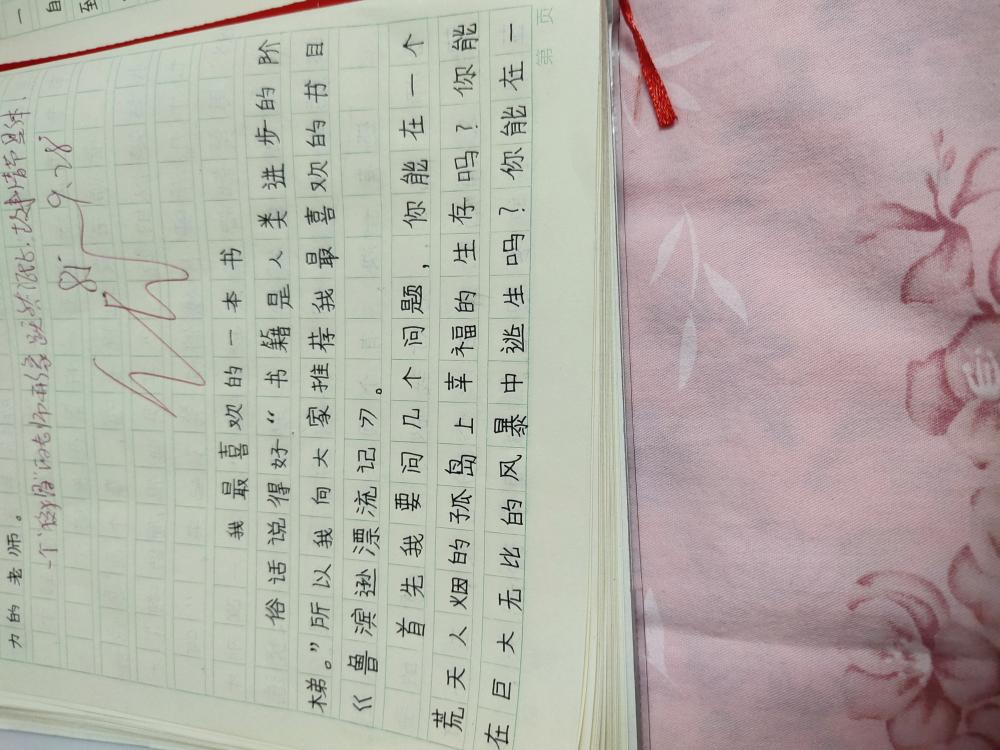 一
自
到
力的老师。
一个"
85
9.28
我最喜欢的一本书
俗话说得好"书籍是人类进步的阶
梯。"所以我向大家推荐我最喜欢的书目
《鲁滨逊漂流记》。
首先我要问几个问题，你能在一个
荒天人烟的孤岛上幸福的生存吗？你能
在巨大无比的风暴中逃生吗？你能在一
第 页